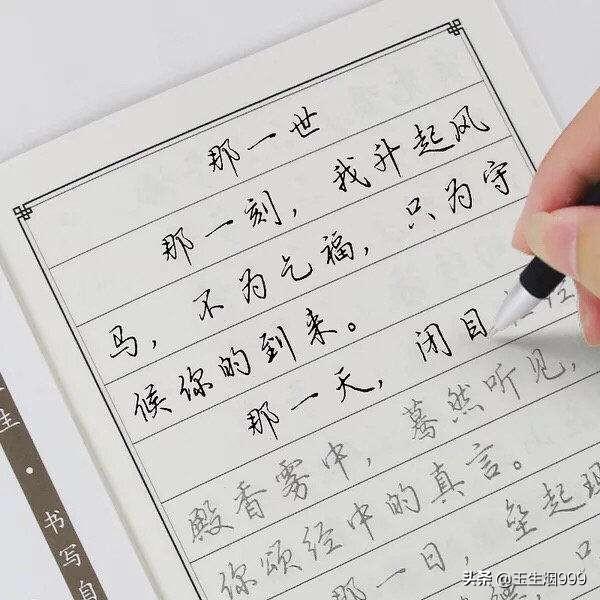 那一世
那一刻，我升起风
马，不为乞福，只为守
候你的到来。
那一天，闭目
殿香雾中，蓦然听见，
你颂经中的真言。
那一日，垒起
只
生·书写自
头条 @王生洇999